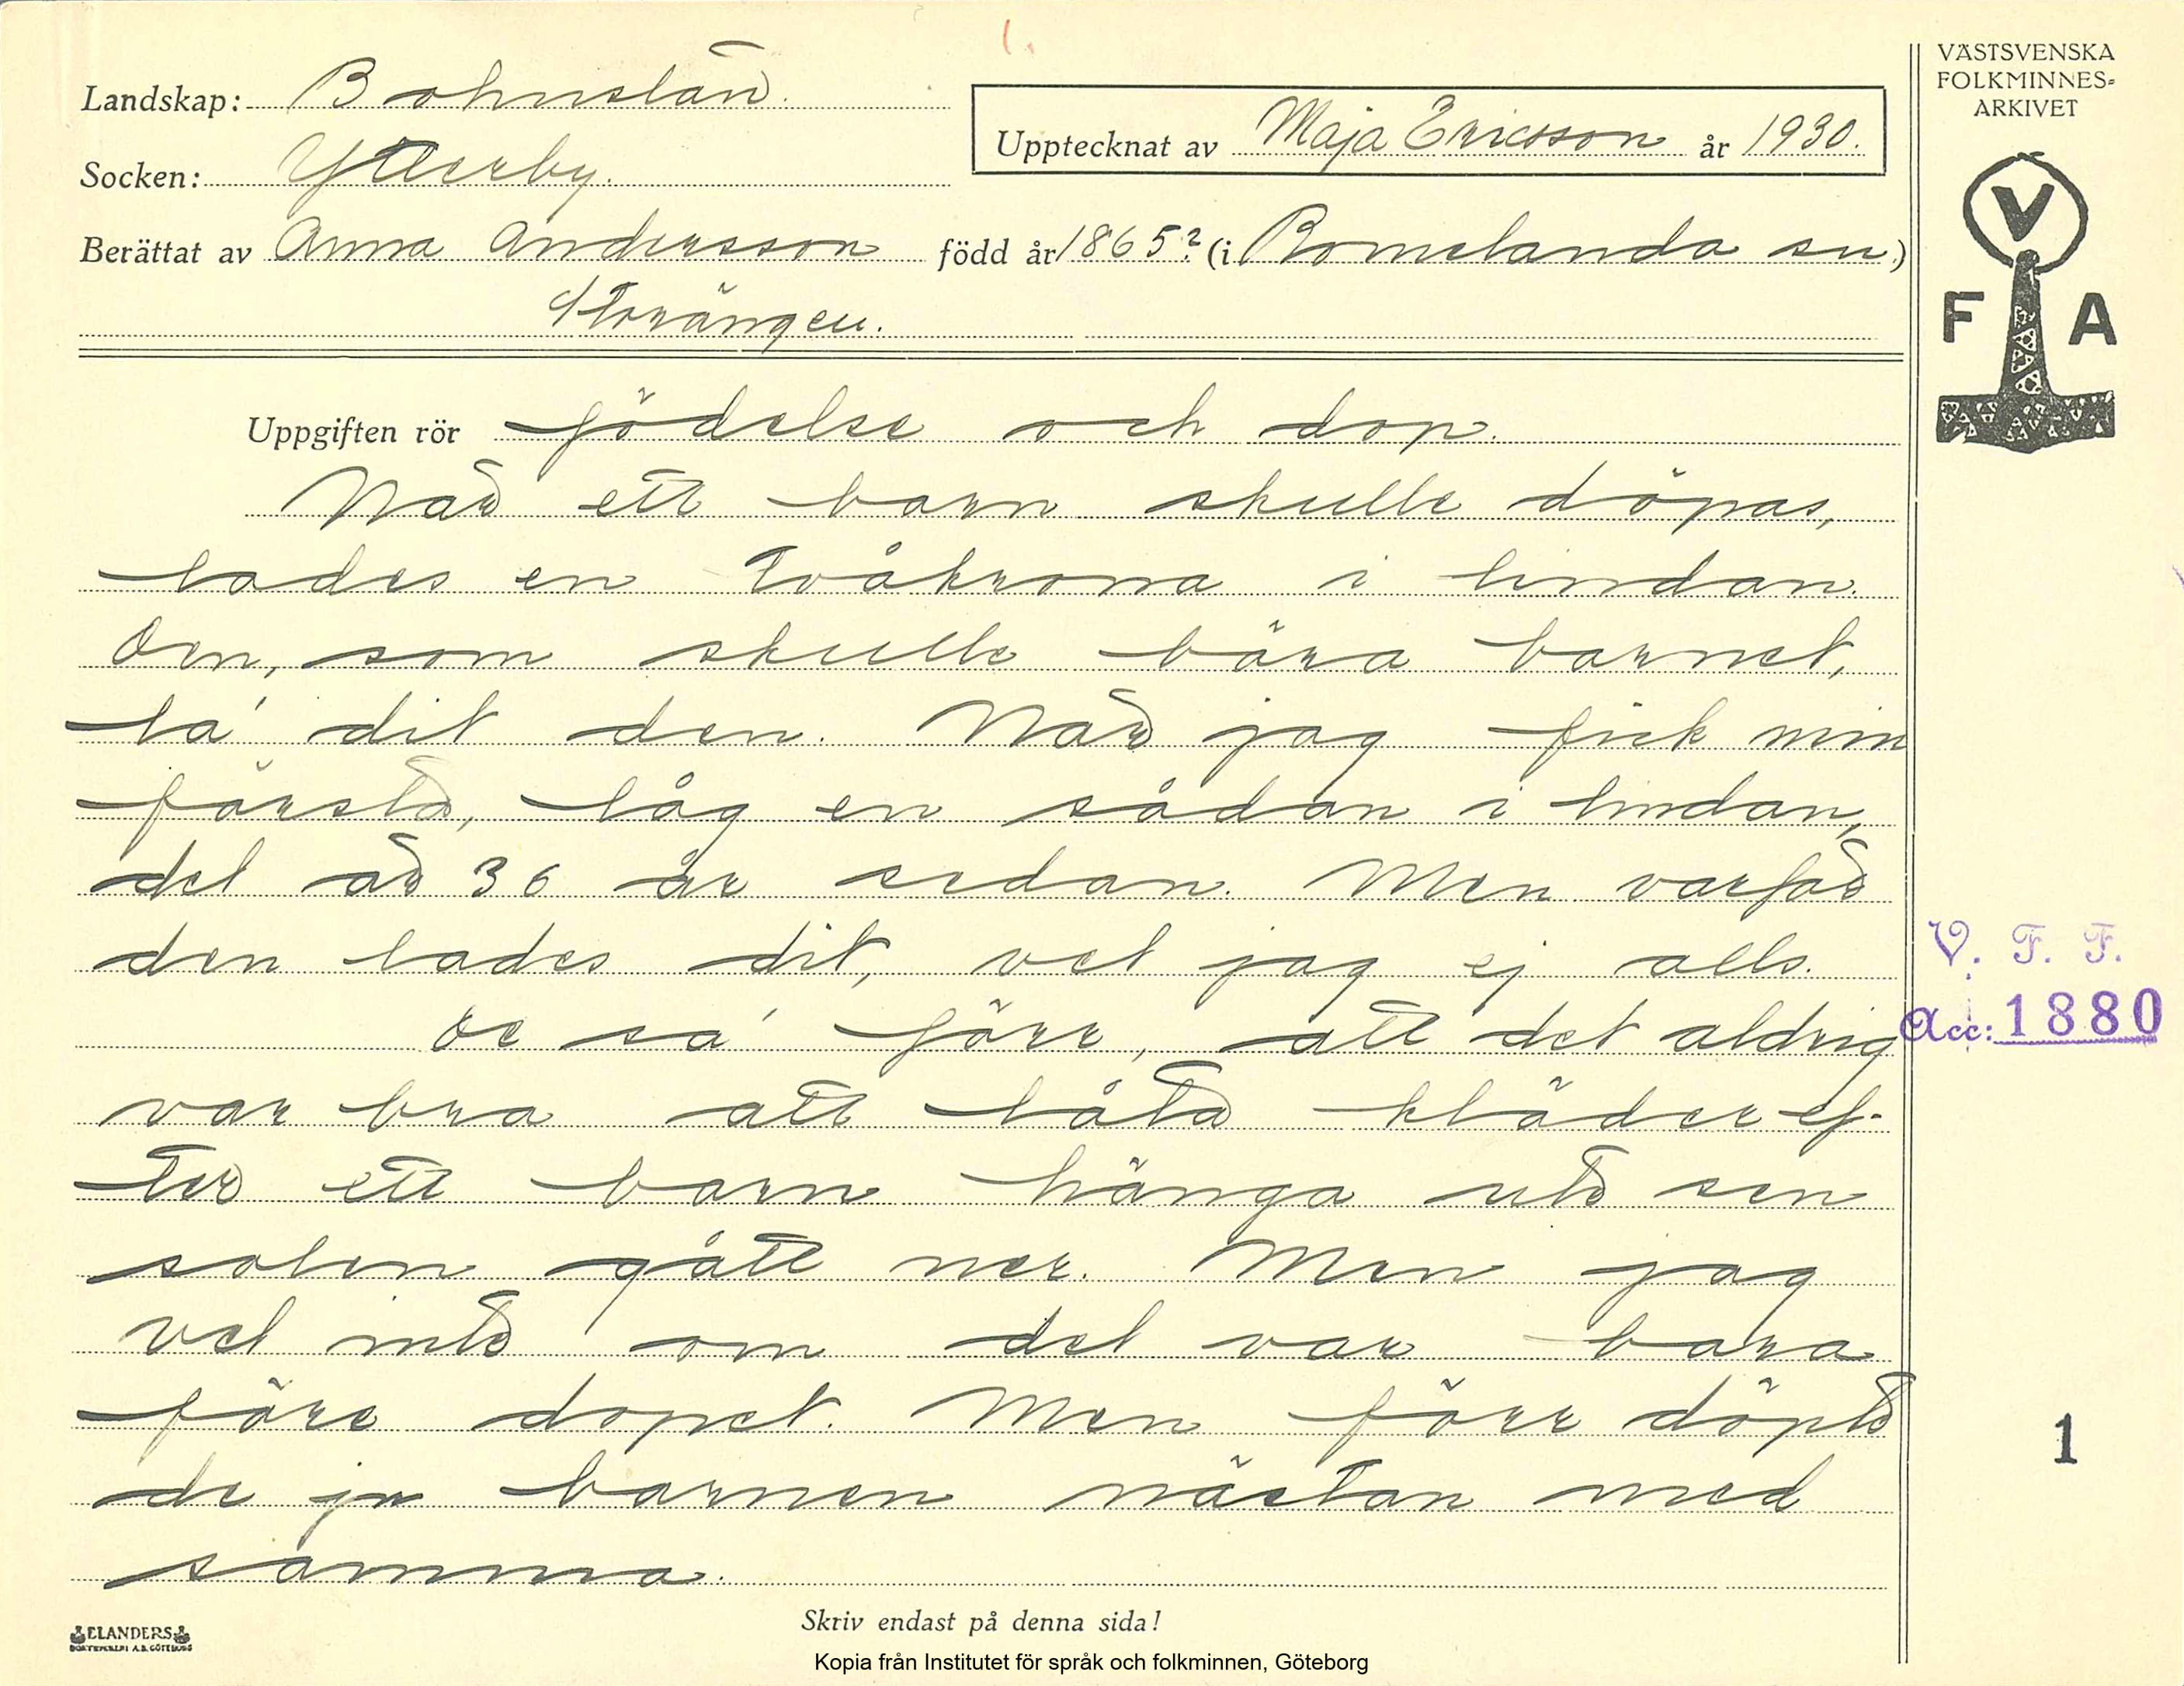 Landskap: Bohuslän.
Socken: Ytterby.
Upptecknat av Maja Ericsson år 1930.
Berättat av Anna Andersson född år 1865? (i Romelanda sn.)
Storängen.
VÄSTSVENSKA
FOLKMINNES-
ARKIVET
V
F A
Uppgiften rör födelse och dop.
När ett barn skulle döpas,
lades en tvåkrona i lindan.
Den, som skulle bära barnet,
la' dit den. När jag fick min
första, låg en sådan i lindan,
det är 36 år sedan. Men varför
den lades dit, vet jag ej alls.
De sa' förr, att det aldrig
var bra att låta kläder ef-
ter ett barn hänga ute sen
solen gått ner. Men jag
vet inte om det var bara
före dopet. Men förr döpte
de ju barnen nästan med
samma.
V. F. F.
Acc: 1880
1
ELANDERS
BOKTRYCKERI A.B. GÖTEBORG
Skriv endast på denna sida!
Kopia från Institutet för språk och folkminnen, Göteborg